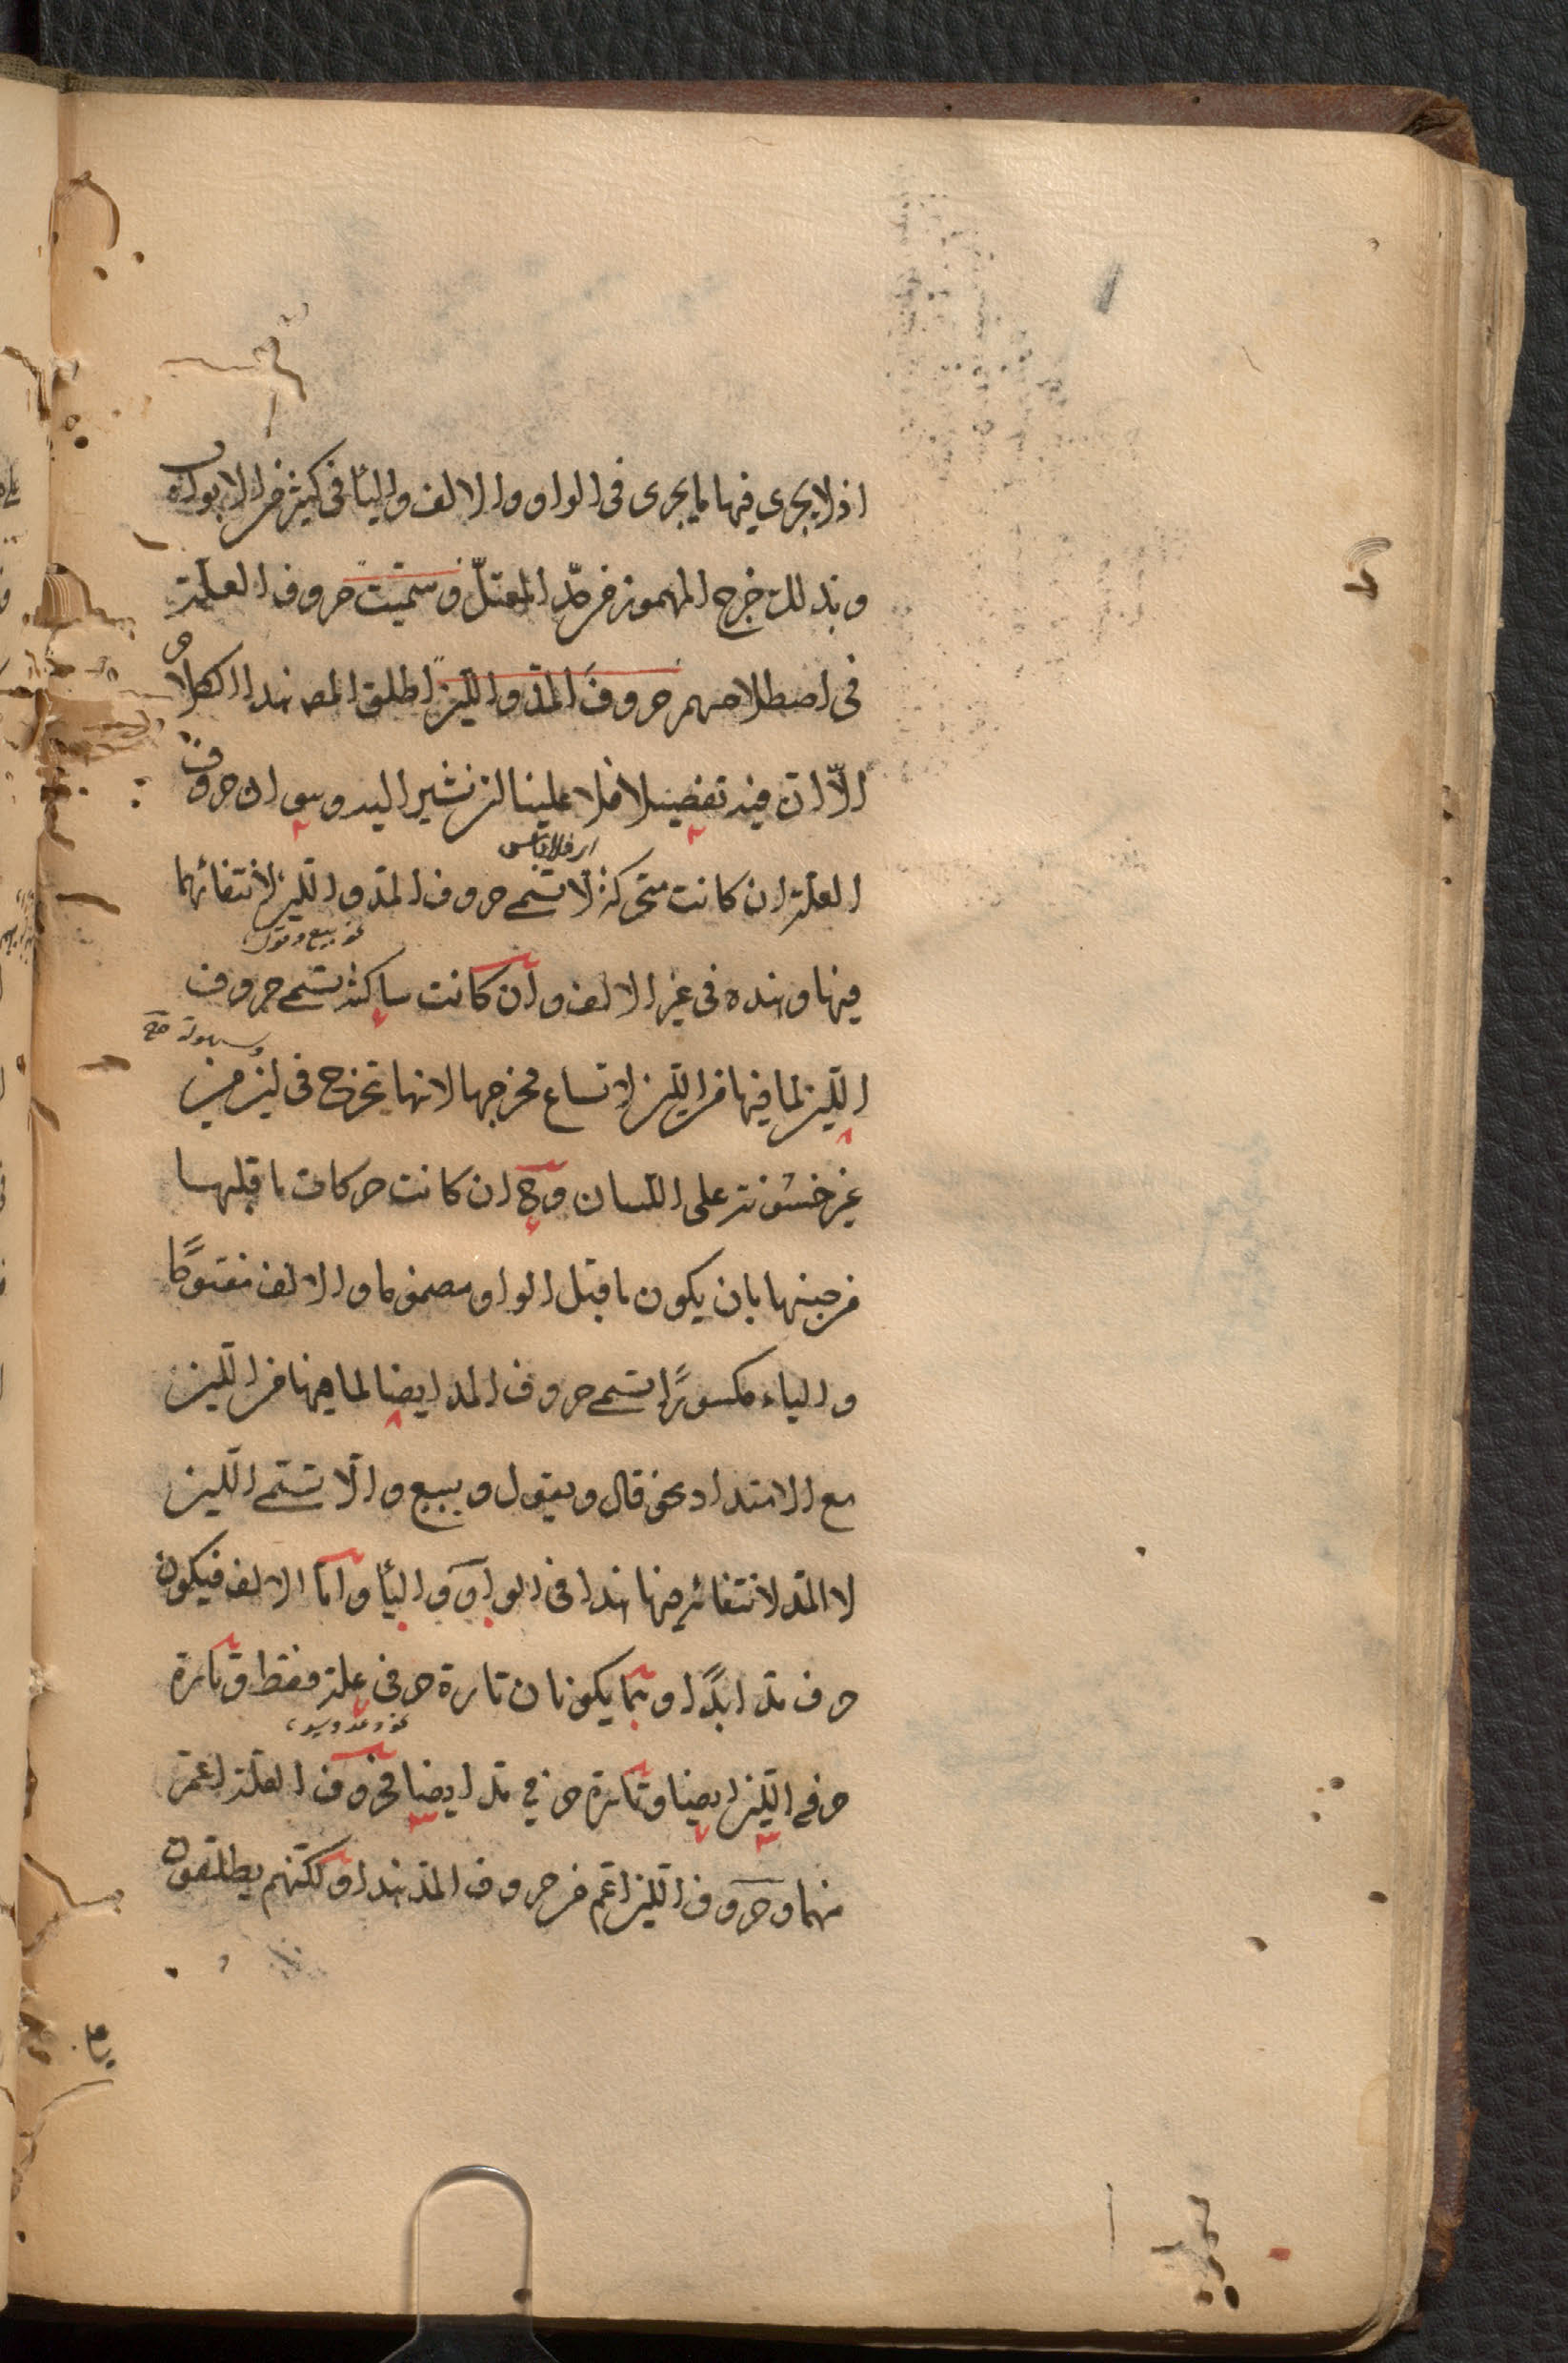 اذ لا يجرى فيها ما يجرى فى الواو والالف واليأ فى كثير من الابواب
وبذلك خرج المهموز من حد المعتلّ وسمّيت حروف العلة
فى اصطلاحهم حروف المدّ واللين اطلق المص هذا الكلام
الّا ان فيه تفصيلا فلا علينا ان نشير اليه وهو ان حروف
العلة ان كانت متحركة لا تسمى حروف المدّ واللين لانتفائهما
نحو بيع وقول
فيها وهذه فى غير الالف وان كانت ساكنة تسمى حروف
وسهولة صح
اللين لما فيها من اللين لاتساع مخرجها لانها تخرج فى لين من
غير خشونة على اللسان وح ان كانت حركات ما قبلها
من جنسها بان يكون ما قبل الواو مضموما والالف مفتوحًا
والياء مكسورًا تسمى حروف المد ايضا لما فيها من اللين
مع الامتداد نحو قال ويقول ويبيع والّا تسمى اللين
لا المدّ لانتفائه فيها هذا فى الواو واليأ وامّا الالف فيكون
حرف مد ابدًا وهما يكونان تارة حرفى علة فقط وتارة
حرفى اللين ايضا وتارة حرفي مد ايضا فحروف العلة اعم
منهما وحروف اللين اعم من حروف المدّ هذا ولكنهم يطلقون